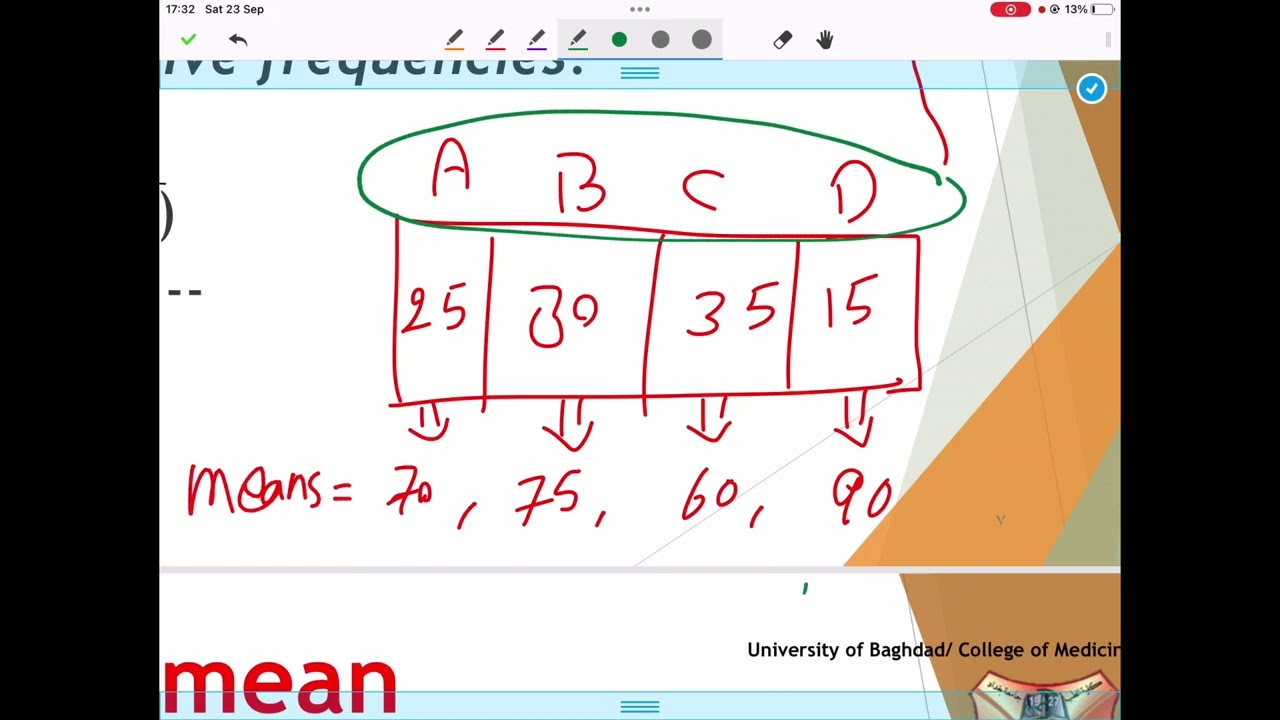 17:32 Sat 23 Sep
13%
ive frequencies:
A B C D
)
--
25 30 35 15
means = 70, 75, 60, 90
٧
University of Baghdad/ College of Medicin
mean